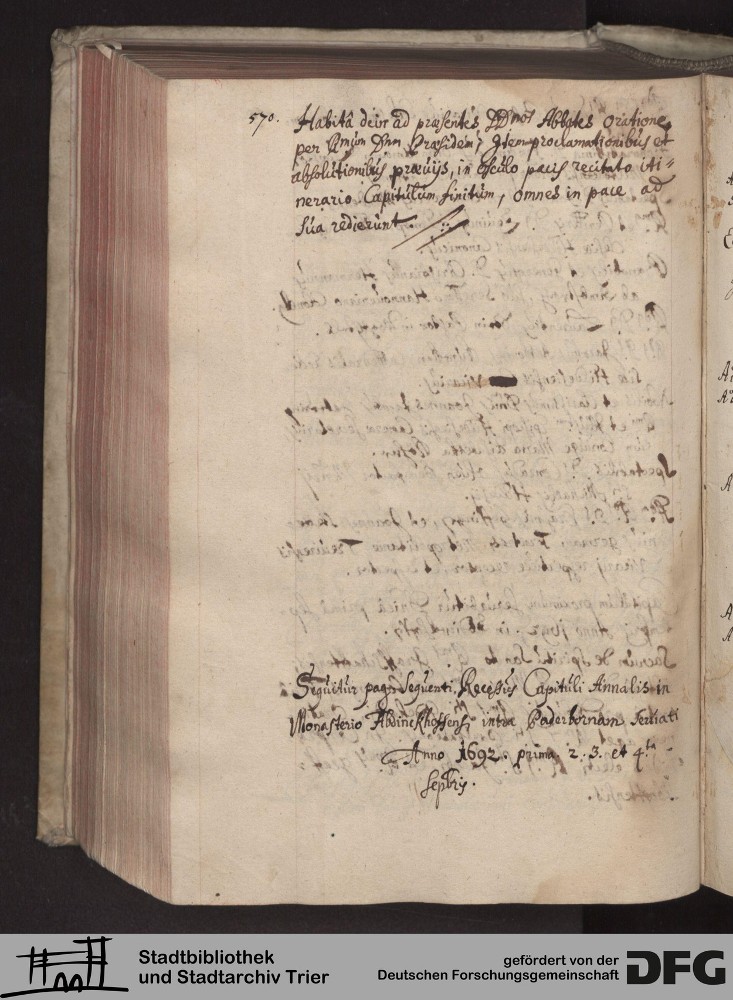 570. Habitâ dein ad præsentes DDnos Abbates oratione
per Rmum Dnm Præsidem, Item proclamationibus et
absolutionibus præuijs, in osculo pacis recitato iti=
nerario Capitulum finitum, omnes in pace ad
sua redierunt
Sequitur pag. sequenti Recessus Capituli Annalis in
Monasterio Abdinckhoffensi intra Paderbornam seruati
Anno 1692. prima. 2. 3. et 4ta
Septbris.
Stadtbibliothek
und Stadtarchiv Trier
gefördert von der
Deutschen Forschungsgemeinschaft
DFG